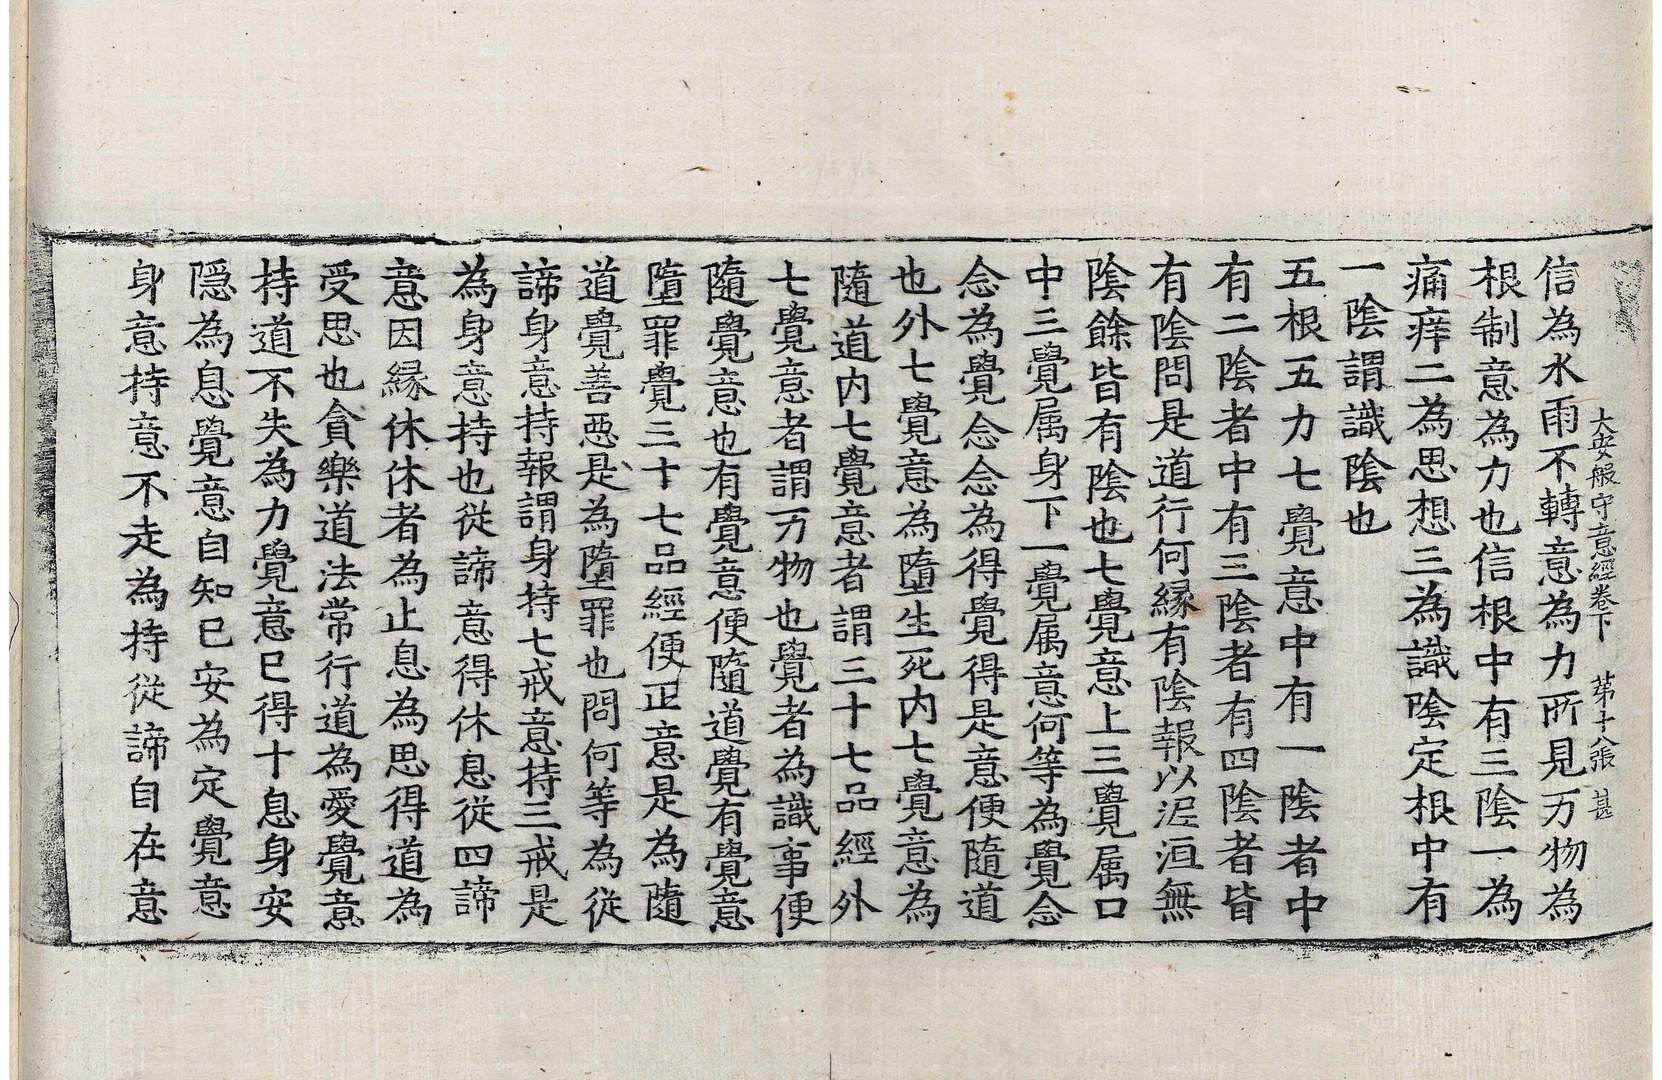 大安般守意經卷下　第十八張　甚
信為水雨不轉意為力所見万物為
根制意為力也信根中有三陰一為
痛痒二為思想三為識陰定根中有
一陰謂識陰也
五根五力七覺意中有一陰者中
有二陰者中有三陰者有四陰者皆
有陰問是道行何縁有陰報以泥洹無
陰餘皆有陰也七覺意上三覺属口
中三覺属身下一覺属意何等為覺念
念為覺念念為得覺得是意便隨道
也外七覺意為墮生死内七覺意為
隨道内七覺意者謂三十七品經外
七覺意者謂万物也覺者為識事便
隨覺意也有覺意便隨道覺有覺意
墮罪覺三十七品經便正意是為隨
道覺善惡是為墮罪也問何等為從
諦身意持報謂身持七戒意持三戒是
為身意持也從諦意得休息從四諦
意因縁休休者為止息為思得道為
受思也貪樂道法常行道為愛覺意
持道不失為力覺意已得十息身安
隱為息覺意自知已安為定覺意
身意持意不走為持從諦自在意